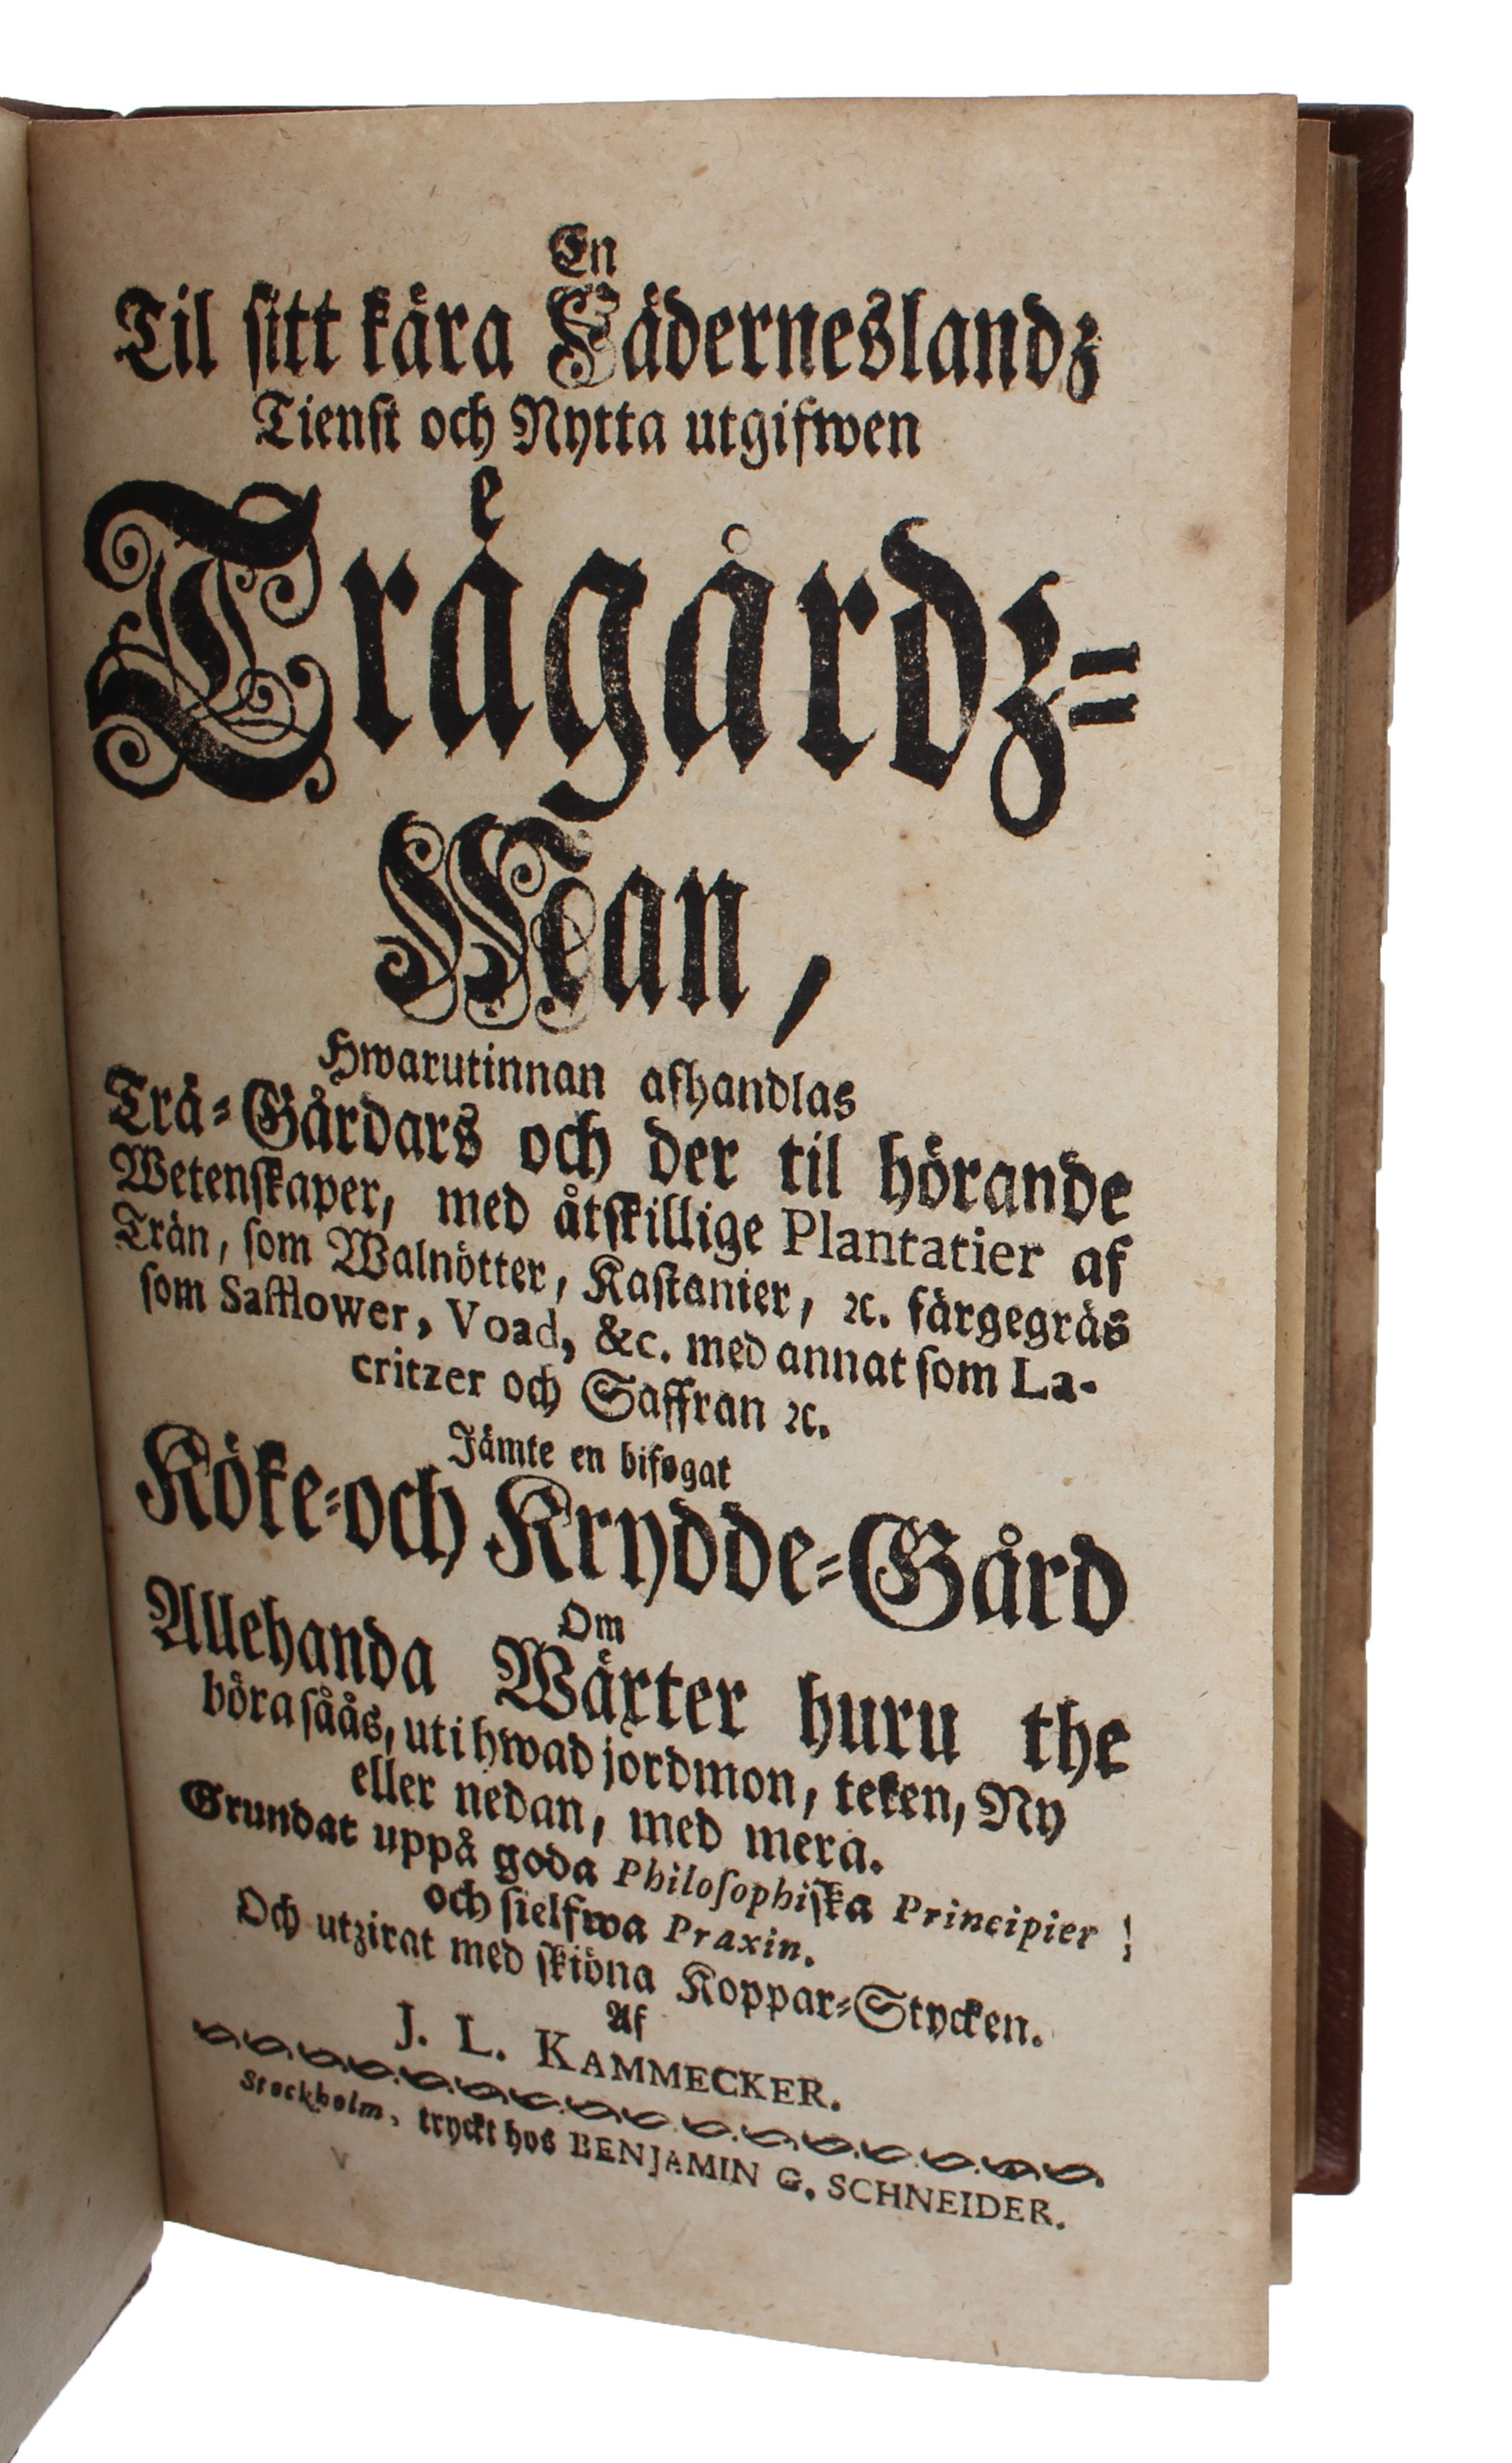 En
Til sitt kära Fäderneslandz
Tienst och Nytta utgifwen
Trägårdz=
Man,
Hwarutinnan afhandlas
Trä=Gårdars och der til hörande
Wetenskaper, med åtskillige Plantatier af
Trän, som Walnötter, Kastanier, ꝛc. färgegräs
som Safflower, Voad, &c. med annat som La-
critzer och Saffran ꝛc.
Jämte en bifogat
Köke=och Krydde=Gård
Om
Allehanda Wäxter huru the
böra såås, uti hwad jordmon, teken, Ny
eller nedan, med mera.
Grundat uppå goda Philosophiska Principier
och sielfwa Praxin.
Och utzirat med skiöna Koppar=Stycken.
Af
J. L. KAMMECKER.
Stockholm, tryckt hos BENJAMIN G. SCHNEIDER.